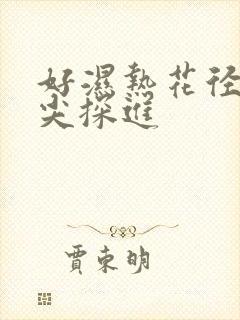 好濕熱花径
尖探進
賈束明